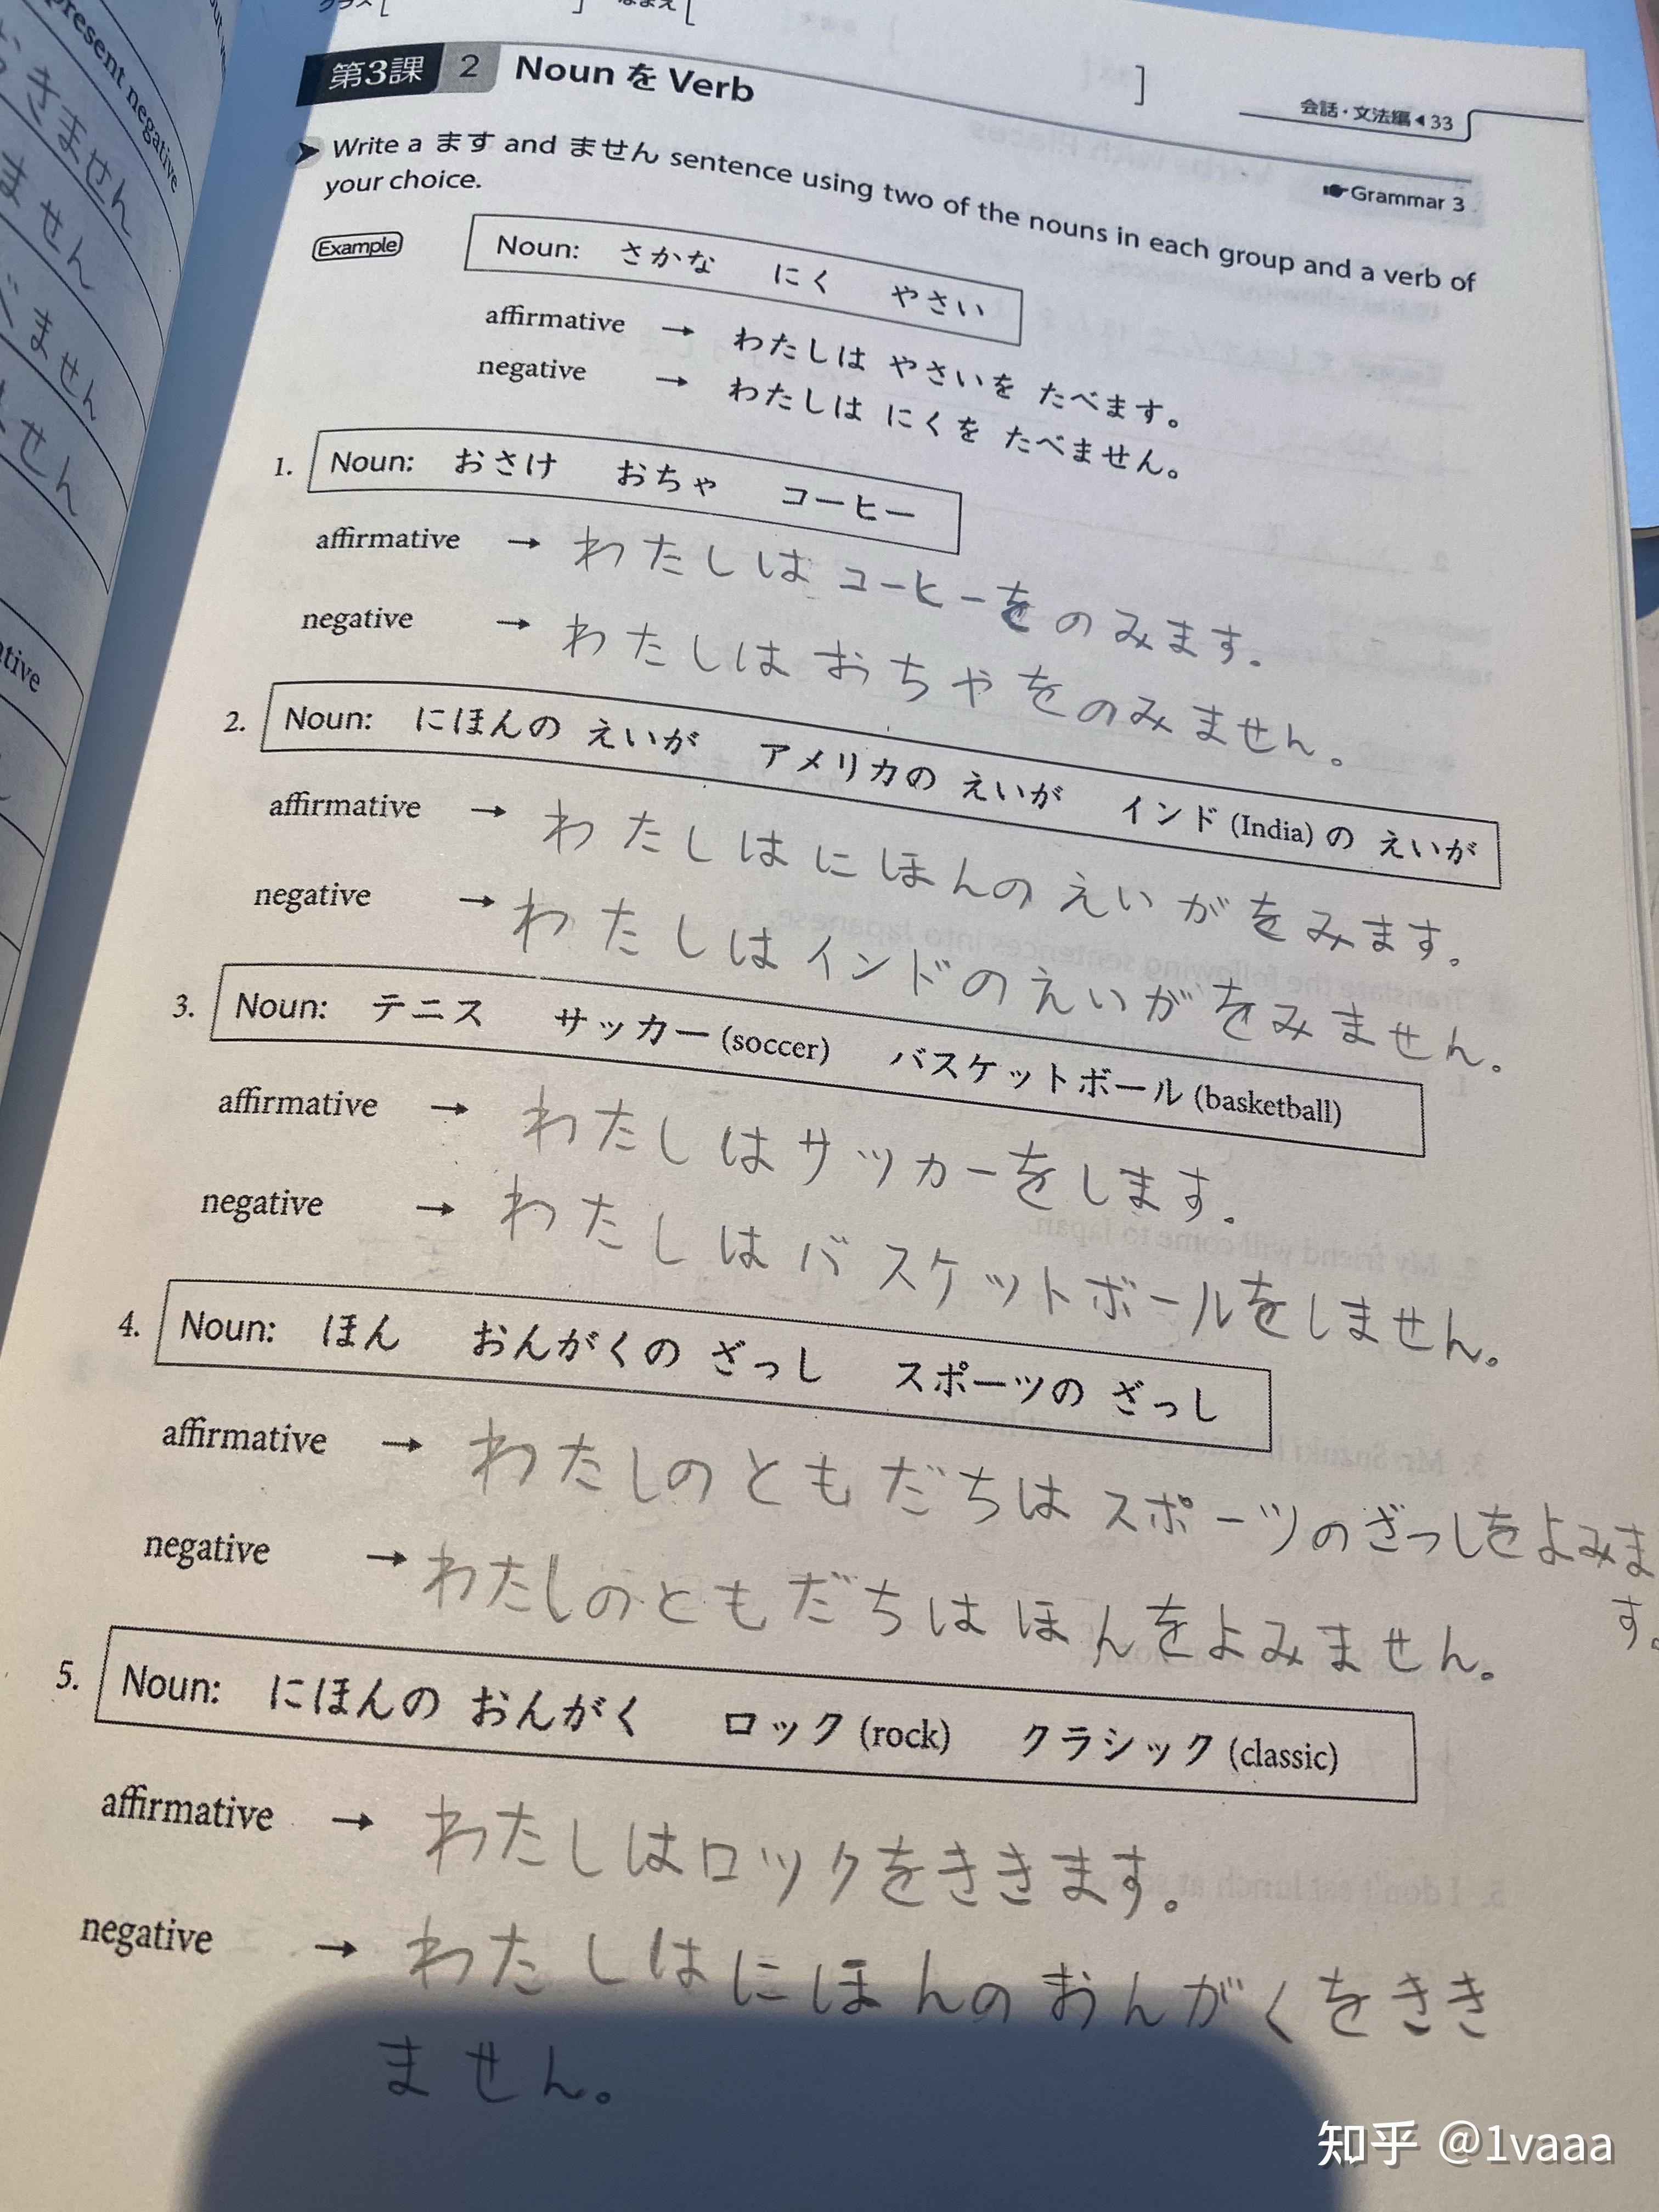 クラス[ ] なまえ[ ]
会話・文法編◀33
第3課 2 Noun を Verb
☛Grammar 3
➤ Write a ます and ません sentence using two of the nouns in each group and a verb of
your choice.
Example Noun: さかな にく やさい
affirmative → わたしは やさいを たべます。
negative → わたしは にくを たべません。
1. Noun: おさけ おちゃ コーヒー
affirmative → わたしはコーヒーをのみます。
negative → わたしはおちゃをのみません。
2. Noun: にほんの えいが アメリカの えいが インド (India) の えいが
affirmative → わたしはにほんのえいがをみます。
negative → わたしはインドのえいがをみません。
3. Noun: テニス サッカー (soccer) バスケットボール (basketball)
affirmative → わたしはサッカーをします。
negative → わたしはバスケットボールをしません。
4. Noun: ほん おんがくの ざっし スポーツの ざっし
affirmative → わたしのともだちはスポーツのざっしをよみま
す。
negative → わたしのともだちはほんをよみません。
5. Noun: にほんの おんがく ロック (rock) クラシック (classic)
affirmative → わたしはロックをききます。
negative → わたしはにほんのおんがくをきき
ません。
present negative
きません
ません
じません
ません
知乎 @1vaaa